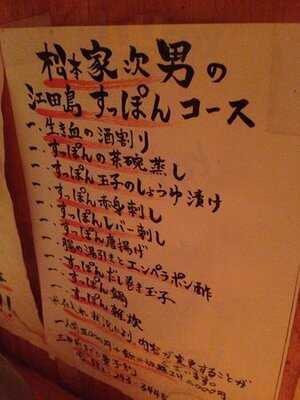 松本家次男の
江田島すっぽんコース
一、生き血の酒割り
一、すっぽんの茶碗蒸し
一、すっぽん玉子のしょうゆ漬け
一、すっぽん赤身刺し
一、すっぽんレバー刺し
一、すっぽん唐揚げ
一、腸の湯引きとエンペラポン酢
一、すっぽんだし巻き玉子
一、すっぽん鍋
一、すっぽん雑炊
※仕入れ状況により内容が変更することが